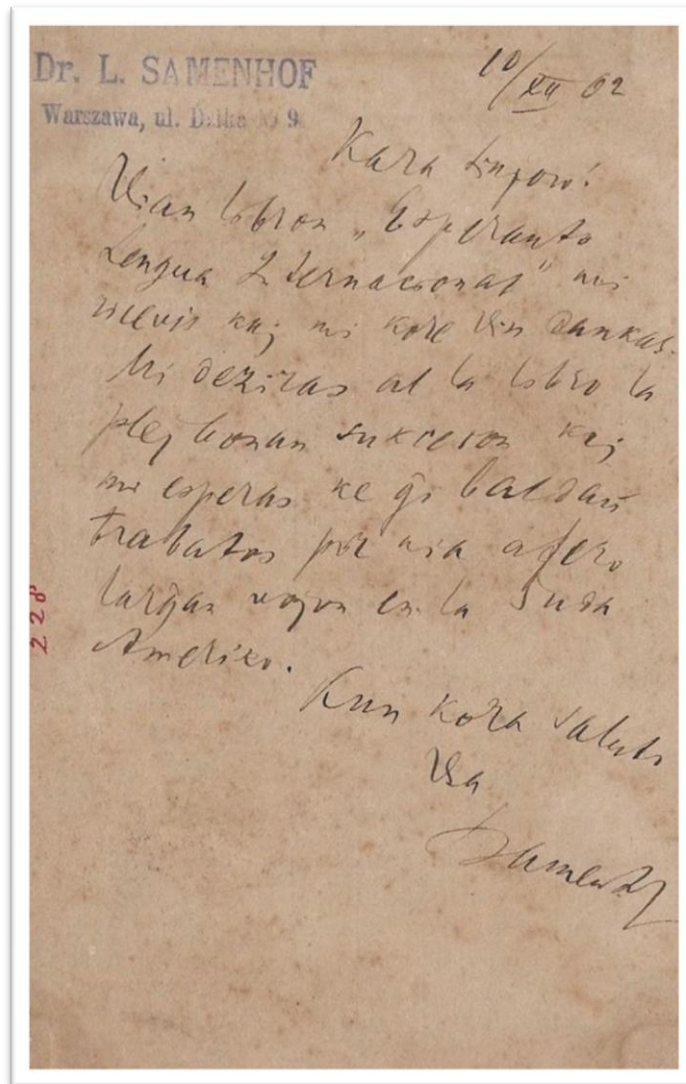 Dr. L. SAMENHOF
Warszawa, ul. Dzika № 9.
10/XII 02
Kara Sinjoro!
Vian libron „Esperanto
Lengua Internacional" mi
ricevis kaj mi kore Vin dankas.
Mi deziras al la libro la
plej bonan sukceson kaj
mi esperas ke ĝi baldaŭ
trabatos por nia afero
larĝan vojon en la Suda
Ameriko.
Kun kora saluto
Via
Zamenhof
228